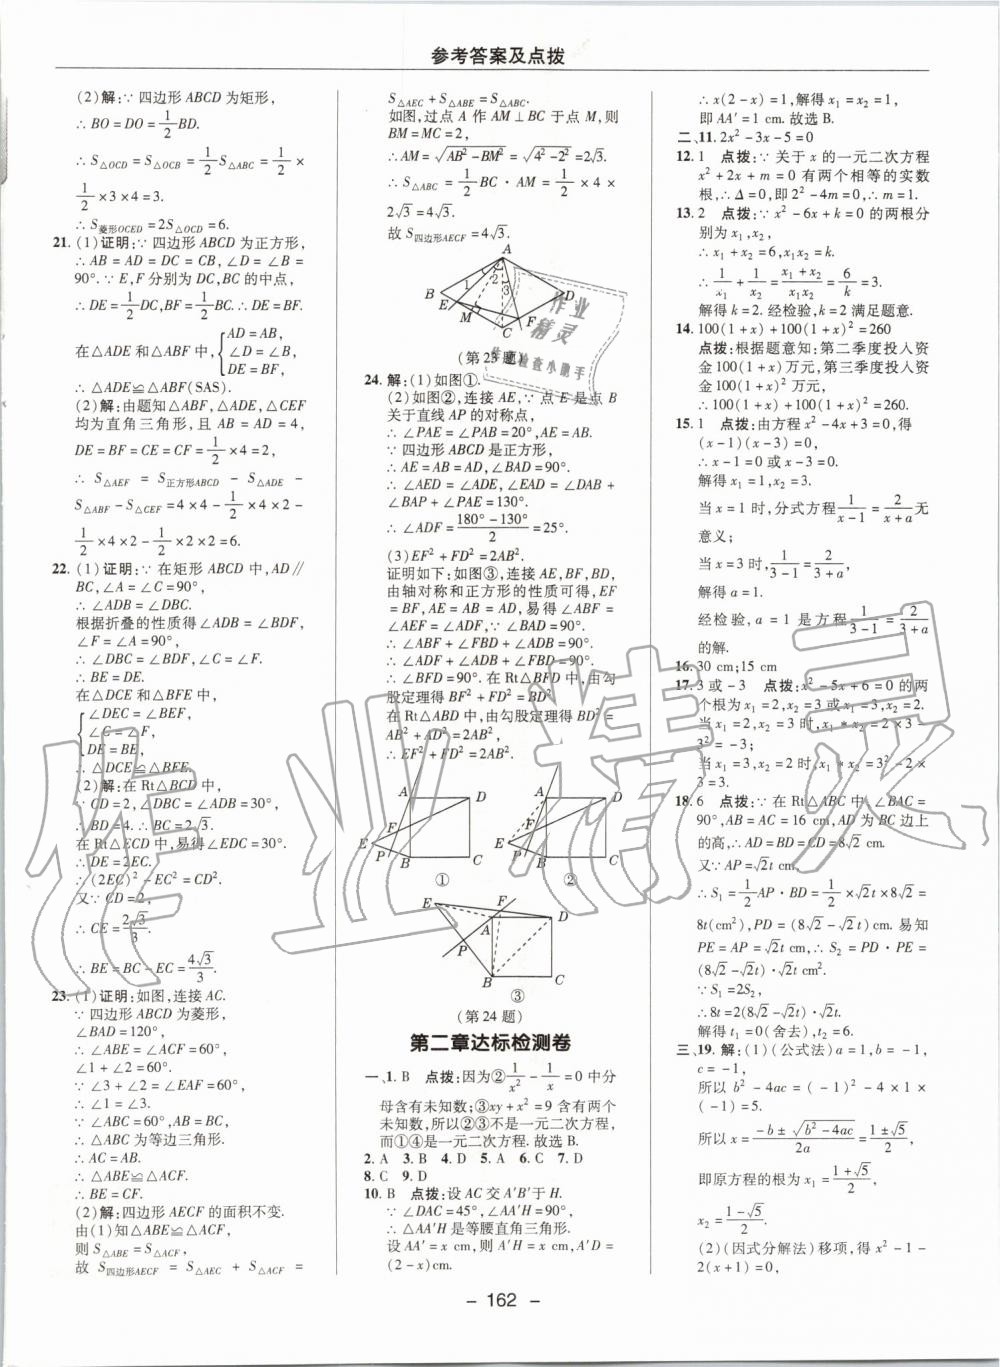 参考答案及点拨
(2)解:∵四边形ABCD为矩形,
∴BO=DO=1/2BD.
∴S△OCD=S△OCB=1/2S△ABC=1/2×
1/2×3×4=3.
∴S菱形OCED=2S△OCD=6.
21.(1)证明:∵四边形ABCD为正方形,
∴AB=AD=DC=CB,∠D=∠B=
90°.∵E,F分别为DC,BC的中点,
∴DE=1/2DC,BF=1/2BC.∴DE=BF.
在△ADE和△ABF中,{AD=AB,
∠D=∠B,
DE=BF,
∴△ADE≌△ABF(SAS).
(2)解:由题知△ABF,△ADE,△CEF
均为直角三角形,且AB=AD=4,
DE=BF=CE=CF=1/2×4=2,
∴S△AEF=S正方形ABCD-S△ADE-
S△ABF-S△CEF=4×4-1/2×4×2-
1/2×4×2-1/2×2×2=6.
22.(1)证明:∵在矩形ABCD中,AD∥
BC,∠A=∠C=90°,
∴∠ADB=∠DBC.
根据折叠的性质得∠ADB=∠BDF,
∠F=∠A=90°,
∴∠DBC=∠BDF,∠C=∠F.
∴BE=DE.
在△DCE和△BFE中,
{∠DEC=∠BEF,
∠C=∠F,
DE=BE,
∴△DCE≌△BFE.
(2)解:在Rt△BCD中,
∵CD=2,∠DBC=∠ADB=30°,
∴BD=4.∴BC=2√3.
在Rt△ECD中,易得∠EDC=30°.
∴DE=2EC.
∴(2EC)²-EC²=CD².
又∵CD=2,
∴CE=2√3/3.
∴BE=BC-EC=4√3/3.
23.(1)证明:如图,连接AC.
∵四边形ABCD为菱形,
∠BAD=120°,
∴∠ABE=∠ACF=60°,
∠1+∠2=60°.
∵∠3+∠2=∠EAF=60°,
∴∠1=∠3.
∵∠ABC=60°,AB=BC,
∴△ABC为等边三角形.
∴AC=AB.
∴△ABE≌△ACF.
∴BE=CF.
(2)解:四边形AECF的面积不变.
由(1)知△ABE≌△ACF,
则S△ABE=S△ACF,
故S四边形AECF=S△AEC+S△ACF=
S△AEC+S△ABE=S△ABC.
如图,过点A作AM⊥BC于点M,则
BM=MC=2,
∴AM=√(AB²-BM²)=√(4²-2²)=2√3.
∴S△ABC=1/2BC·AM=1/2×4×
2√3=4√3.
故S四边形AECF=4√3.
A
B
1
2
3
D
E
M
F
C
(第23题)
24.解:(1)如图①.
(2)如图②,连接AE,∵点E是点B
关于直线AP的对称点,
∴∠PAE=∠PAB=20°,AE=AB.
∵四边形ABCD是正方形,
∴AE=AB=AD,∠BAD=90°.
∴∠AED=∠ADE,∠EAD=∠DAB+
∠BAP+∠PAE=130°.
∴∠ADF=(180°-130°)/2=25°.
(3)EF²+FD²=2AB².
证明如下:如图③,连接AE,BF,BD,
由轴对称和正方形的性质可得,EF
=BF,AE=AB=AD,易得∠ABF=
∠AEF=∠ADF,又∵∠BAD=90°,
∴∠ABF+∠FBD+∠ADB=90°.
∴∠ADF+∠ADB+∠FBD=90°.
∴∠BFD=90°.在Rt△BFD中,由勾
股定理得BF²+FD²=BD².
在Rt△ABD中,由勾股定理得BD²=
AB²+AD²=2AB²,
∴EF²+FD²=2AB².
A
D
E
F
P
B
C
①
A
D
F
E
P
B
C
②
E
F
D
A
P
B
C
③
(第24题)
第二章达标检测卷
一、1.B 点拨:因为②1/x²-1/x=0中分
母含有未知数;③xy+x²=9含有两个
未知数,所以②③不是一元二次方程.
而①④是一元二次方程.故选B.
2.A 3.B 4.D 5.A 6.C 7.D
8.C 9.D
10.B 点拨:设AC交A'B'于H.
∵∠DAC=45°,∠AA'H=90°,
∴△AA'H是等腰直角三角形.
设AA'=x cm,则A'H=x cm,A'D=
(2-x)cm.
∴x(2-x)=1,解得x₁=x₂=1,
即AA'=1 cm.故选B.
二、11.2x²-3x-5=0
12.1 点拨:∵关于x的一元二次方程
x²+2x+m=0有两个相等的实数
根,∴Δ=0,即2²-4m=0,∴m=1.
13.2 点拨:∵x²-6x+k=0的两根分
别为x₁,x₂,
∴x₁+x₂=6,x₁x₂=k.
∴1/x₁+1/x₂=(x₁+x₂)/(x₁x₂)=6/k=3.
解得k=2.经检验,k=2满足题意.
14.100(1+x)+100(1+x)²=260
点拨:根据题意知:第二季度投入资
金100(1+x)万元,第三季度投入资
金100(1+x)²万元,
∴100(1+x)+100(1+x)²=260.
15.1 点拨:由方程x²-4x+3=0,得
(x-1)(x-3)=0,
∴x-1=0或x-3=0.
解得x₁=1,x₂=3.
当x=1时,分式方程1/(x-1)=2/(x+a)无
意义;
当x=3时,1/(3-1)=2/(3+a),
解得a=1.
经检验,a=1是方程1/(3-1)=2/(3+a)
的解.
16.30 cm;15 cm
17.3或-3 点拨:x²-5x+6=0的两
个根为x₁=2,x₂=3或x₁=3,x₂=2.
当x₁=2,x₂=3时,x₁*x₂=2×3-
3²=-3;
当x₁=3,x₂=2时,x₁*x₂=3²-
2×3=3.
18.6 点拨:∵在Rt△ABC中,∠BAC=
90°,AB=AC=16 cm,AD为BC边上
的高,∴AD=BD=CD=8√2 cm.
又∵AP=√2t cm,
∴S₁=1/2AP·BD=1/2×√2t×8√2=
8t(cm²),PD=(8√2-√2t)cm.易知
PE=AP=√2t cm,∴S₂=PD·PE=
(8√2-√2t)·√2t cm².
∵S₁=2S₂,
∴8t=2(8√2-√2t)·√2t.
解得t₁=0(舍去),t₂=6.
三、19.解:(1)(公式法)a=1,b=-1,
c=-1,
所以b²-4ac=(-1)²-4×1×
(-1)=5.
所以x=(-b±√(b²-4ac))/2a=(1±√5)/2,
即原方程的根为x₁=(1+√5)/2,
x₂=(1-√5)/2.
(2)(因式分解法)移项,得x²-1-
2(x+1)=0,
- 162 -
作业精灵
作业
精灵
检查小助手